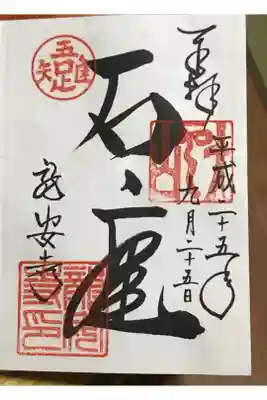 奉拝
平成二十五年
九月二十五日
石庭
吾唯足知
龍安寺